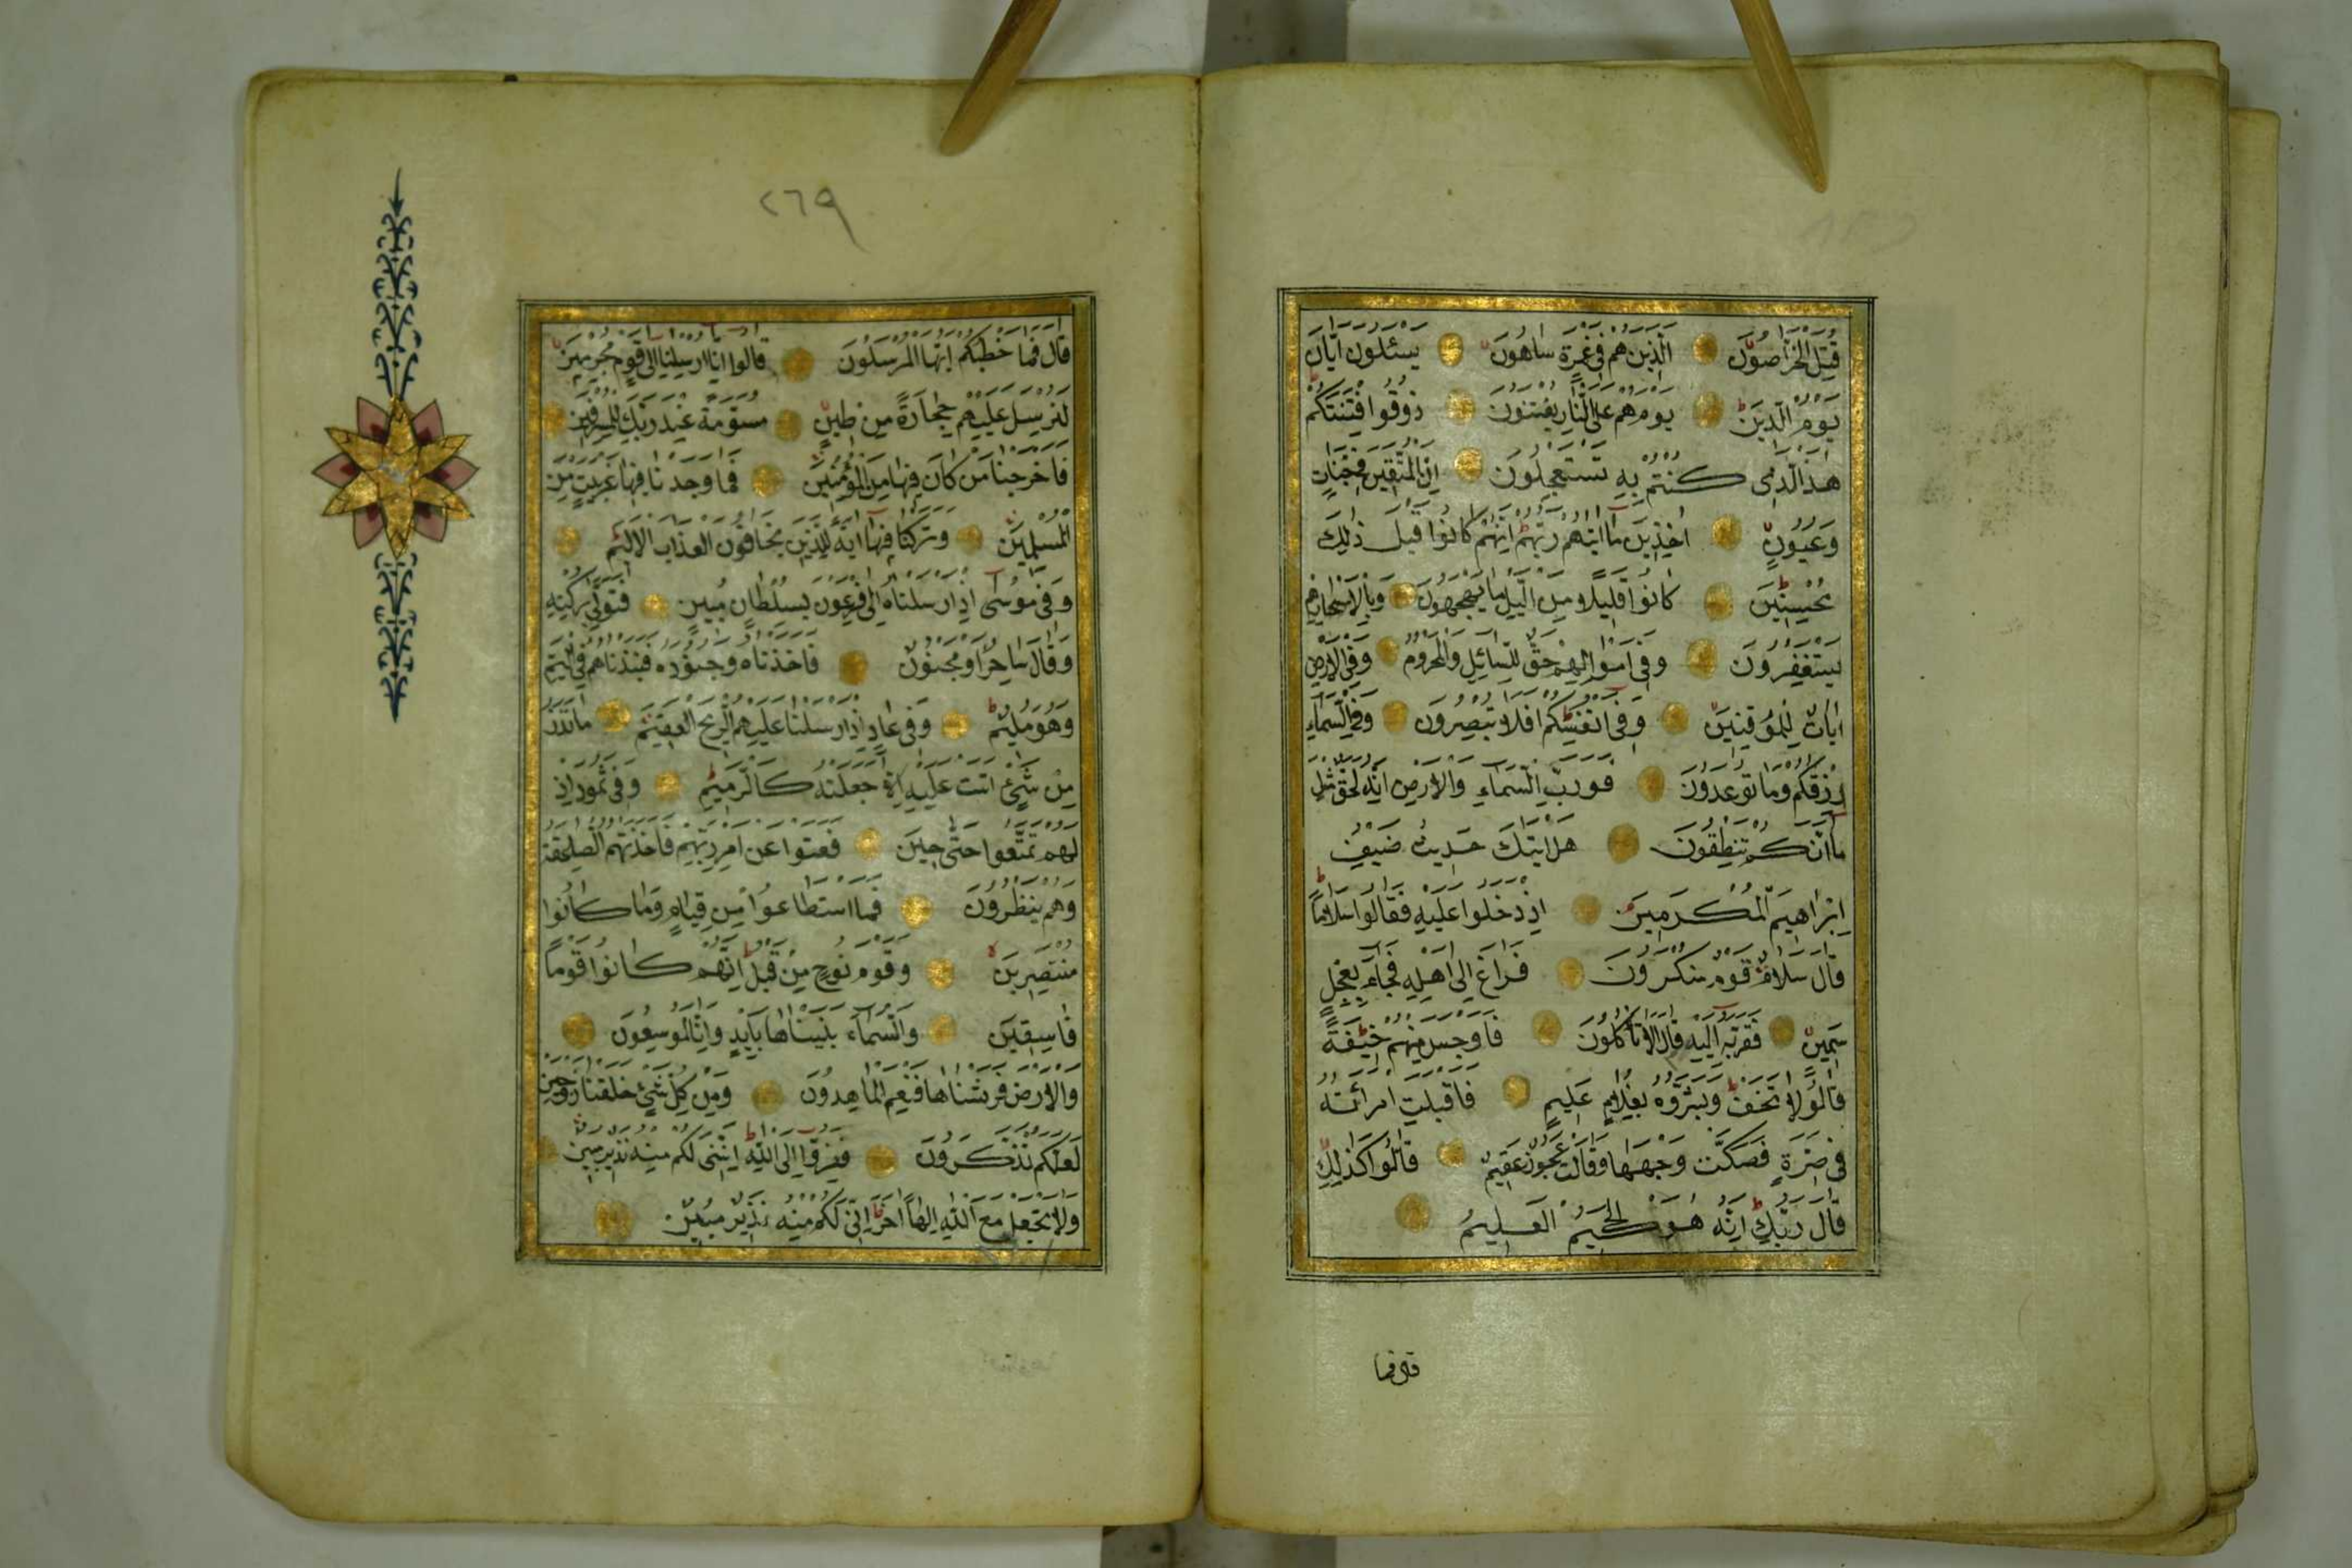 قُتِلَ الْخَرَّاصُونَ الَّذِينَ هُمْ فِي غَمْرَةٍ سَاهُونَ يَسْئَلُونَ اَيَّانَ
يَوْمُ الدِّينِ يَوْمَ هُمْ عَلَى النَّارِ يُفْتَنُونَ ذُوقُوا فِتْنَتَكُمْ
هٰذَا الَّذِي كُنْتُمْ بِهِ تَسْتَعْجِلُونَ اِنَّ الْمُتَّقِينَ فِي جَنَّاتٍ
وَعُيُونٍ اٰخِذِينَ مَا اٰتٰيهُمْ رَبُّهُمْ اِنَّهُمْ كَانُوا قَبْلَ ذٰلِكَ
مُحْسِنِينَ كَانُوا قَلِيلًا مِنَ الَّيْلِ مَا يَهْجَعُونَ وَبِالْاَسْحَارِ هُمْ
يَسْتَغْفِرُونَ وَفِي اَمْوَالِهِمْ حَقٌّ لِلسَّائِلِ وَالْمَحْرُومِ وَفِي الْاَرْضِ
اٰيَاتٌ لِلْمُوقِنِينَ وَفِي اَنْفُسِكُمْ اَفَلَا تُبْصِرُونَ وَفِي السَّمَاءِ
رِزْقُكُمْ وَمَا تُوعَدُونَ فَوَرَبِّ السَّمَاءِ وَالْاَرْضِ اِنَّهُ لَحَقٌّ مِثْلَ
مَا اَنَّكُمْ تَنْطِقُونَ هَلْ اَتٰيكَ حَدِيثُ ضَيْفِ
اِبْرَاهِيمَ الْمُكْرَمِينَ اِذْ دَخَلُوا عَلَيْهِ فَقَالُوا سَلَامًا
قَالَ سَلَامٌ قَوْمٌ مُنْكَرُونَ فَرَاغَ اِلٰى اَهْلِهِ فَجَاءَ بِعِجْلٍ
سَمِينٍ فَقَرَّبَهُ اِلَيْهِمْ قَالَ اَلَا تَأْكُلُونَ فَاَوْجَسَ مِنْهُمْ خِيفَةً
قَالُوا لَا تَخَفْ وَبَشَّرُوهُ بِغُلَامٍ عَلِيمٍ فَاَقْبَلَتِ امْرَاَتُهُ
فِي صَرَّةٍ فَصَكَّتْ وَجْهَهَا وَقَالَتْ عَجُوزٌ عَقِيمٌ قَالُوا كَذٰلِكِ
قَالَ رَبُّكِ اِنَّهُ هُوَ الْحَكِيمُ الْعَلِيمُ
قال فما
٢٦٩
قَالَ فَمَا خَطْبُكُمْ اَيُّهَا الْمُرْسَلُونَ قَالُوا اِنَّا اُرْسِلْنَا اِلٰى قَوْمٍ مُجْرِمِينَ
لِنُرْسِلَ عَلَيْهِمْ حِجَارَةً مِنْ طِينٍ مُسَوَّمَةً عِنْدَ رَبِّكَ لِلْمُسْرِفِينَ
فَاَخْرَجْنَا مَنْ كَانَ فِيهَا مِنَ الْمُؤْمِنِينَ فَمَا وَجَدْنَا فِيهَا غَيْرَ بَيْتٍ مِنَ
الْمُسْلِمِينَ وَتَرَكْنَا فِيهَا اٰيَةً لِلَّذِينَ يَخَافُونَ الْعَذَابَ الْاَلِيمَ
وَفِي مُوسٰى اِذْ اَرْسَلْنَاهُ اِلٰى فِرْعَوْنَ بِسُلْطَانٍ مُبِينٍ فَتَوَلّٰى بِرُكْنِهِ
وَقَالَ سَاحِرٌ اَوْ مَجْنُونٌ فَاَخَذْنَاهُ وَجُنُودَهُ فَنَبَذْنَاهُمْ فِي الْيَمِّ
وَهُوَ مُلِيمٌ وَفِي عَادٍ اِذْ اَرْسَلْنَا عَلَيْهِمُ الرِّيحَ الْعَقِيمَ مَا تَذَرُ
مِنْ شَيْءٍ اَتَتْ عَلَيْهِ اِلَّا جَعَلَتْهُ كَالرَّمِيمِ وَفِي ثَمُودَ اِذْ
لَهُمْ تَمَتَّعُوا حَتّٰى حِينٍ فَعَتَوْا عَنْ اَمْرِ رَبِّهِمْ فَاَخَذَتْهُمُ الصَّاعِقَةُ
وَهُمْ يَنْظُرُونَ فَمَا اسْتَطَاعُوا مِنْ قِيَامٍ وَمَا كَانُوا
مُنْتَصِرِينَ وَقَوْمَ نُوحٍ مِنْ قَبْلُ اِنَّهُمْ كَانُوا قَوْمًا
فَاسِقِينَ وَالسَّمَاءَ بَنَيْنَاهَا بِاَيْيدٍ وَاِنَّا لَمُوسِعُونَ
وَالْاَرْضَ فَرَشْنَاهَا فَنِعْمَ الْمَاهِدُونَ وَمِنْ كُلِّ شَيْءٍ خَلَقْنَا زَوْجَيْنِ
لَعَلَّكُمْ تَذَكَّرُونَ فَفِرُّوا اِلَى اللّٰهِ اِنِّي لَكُمْ مِنْهُ نَذِيرٌ مُبِينٌ
وَلَا تَجْعَلُوا مَعَ اللّٰهِ اِلٰهًا اٰخَرَ اِنِّي لَكُمْ مِنْهُ نَذِيرٌ مُبِينٌ